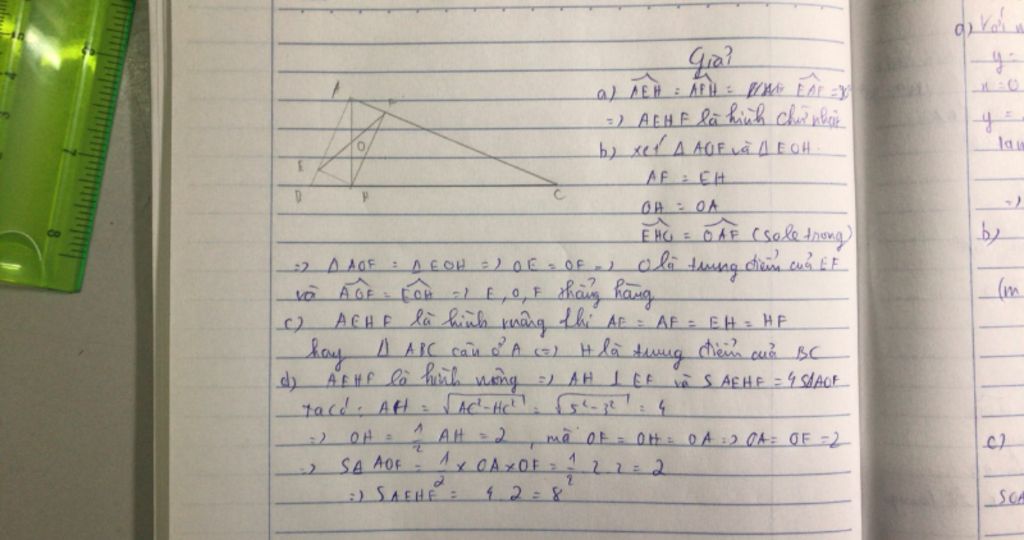 Giải
a) AEH = AFH = EAF =
=> AEHF là hình chữ nhật
b) xét Δ AOF và Δ EOH
AF = EH
OH = OA
EHO = OAF (sole trong)
=> Δ AOF = Δ EOH => OE = OF => O là trung điểm của EF
và AOF = EOH => E, O, F thẳng hàng
c) AEHF là hình vuông thì AE = AF = EH = HF
hay Δ ABC cân ở A => H là trung điểm của BC
d) AEHF là hình vuông => AH ⊥ EF và SAEHF = 4SΔAOF
Ta có: AH = √AC²-HC² = √5²-3² = 4
=> OH = 1/2 AH = 2, mà OF = OH = OA => OA = OF = 2
=> SΔ AOF = 1/2 x OA x OF = 1/2 2 2 = 2
=> SAEHF = 4 2 = 8
A
F
O
E
B
H
C
3
4
5
8
a) Với
y =
x = 0
y =
=>
b)
(m
c)